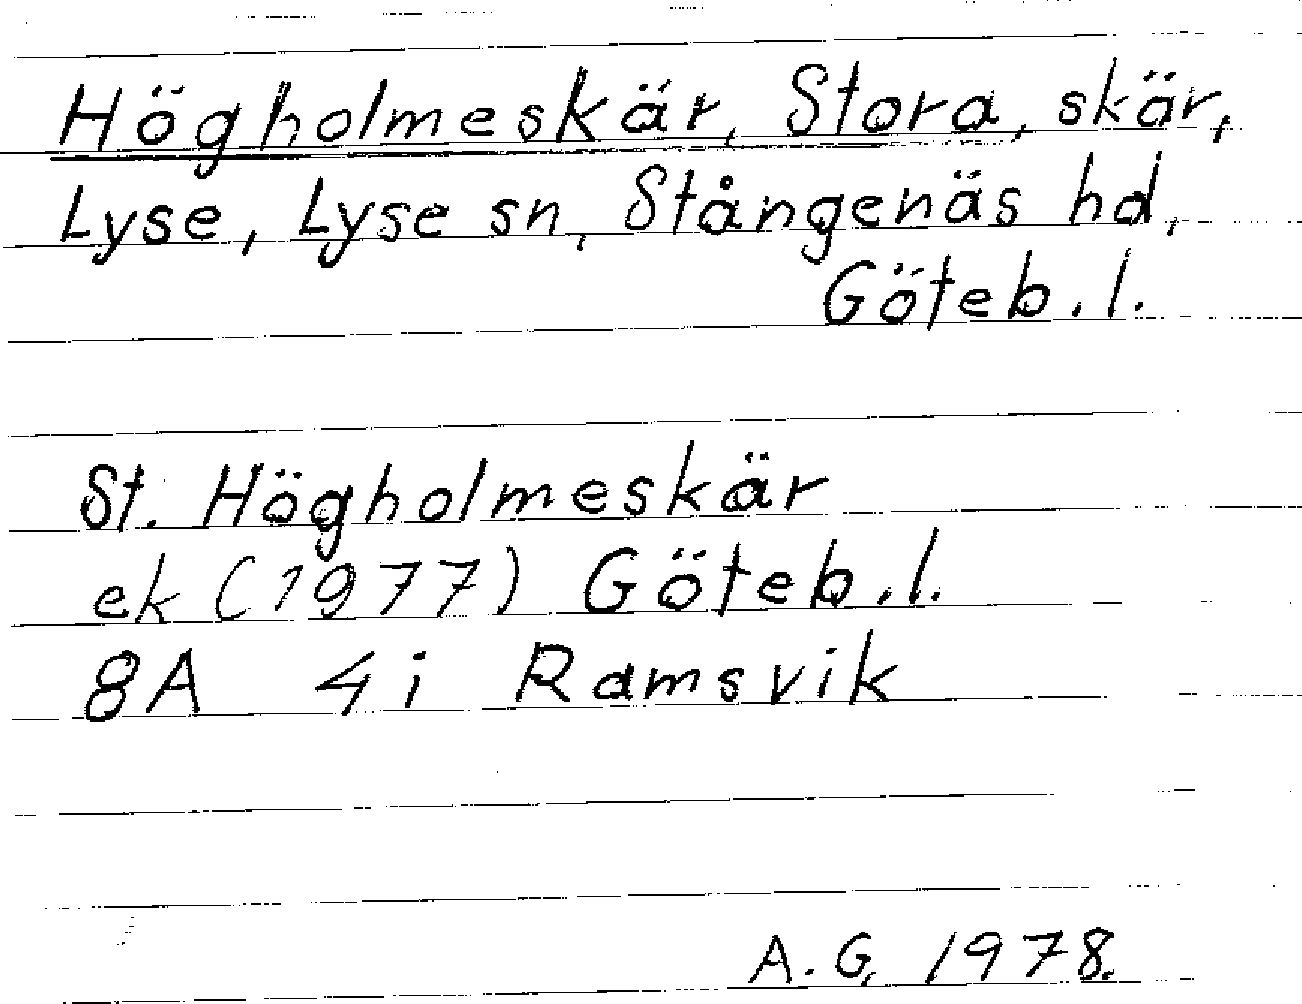 Högholmeskär, Stora, skär,
Lyse, Lyse sn, Stångenäs hd,
Göteb. l.
St. Högholmeskär
ek (1977) Göteb. l.
8A 4i Ramsvik
A. G. 1978.